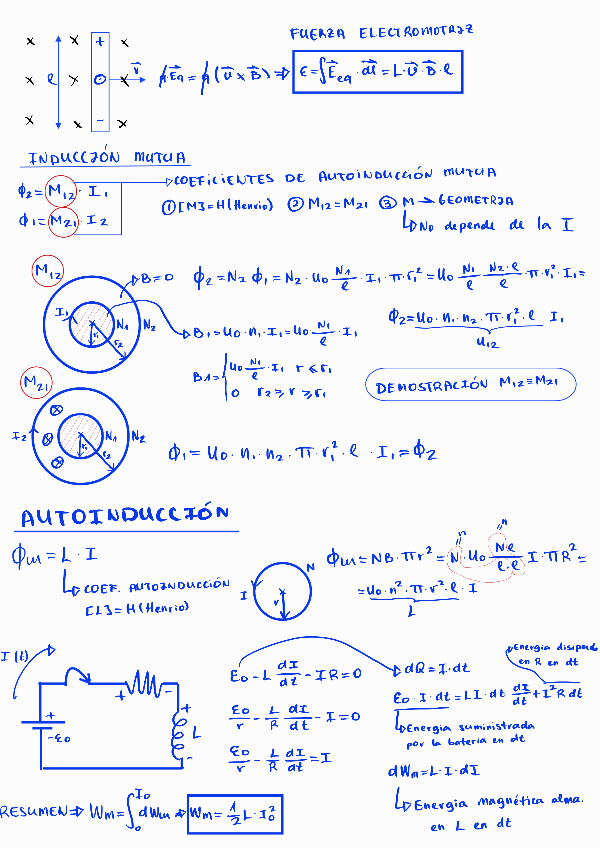 FUERZA ELECTROMOTRIZ
x x + x
x ℓ x x v⃗ q·E⃗eq = q(v⃗ x B⃗) ⇒ ε = ∫E⃗eq · dl⃗ = L·v⃗·B⃗·ℓ
x x - x
INDUCCIÓN MUTUA
Φ2 = M12 · I1 → COEFICIENTES DE AUTOINDUCCIÓN MUTUA
Φ1 = M21 · I2 ① [M] = H (Henrio) ② M12 = M21 ③ M → GEOMETRIA
↳ No depende de la I
M12
B = 0 Φ2 = N2 Φ1 = N2 · u0 N1/ℓ · I1 · π · r1² = u0 N1/ℓ N2·ℓ/ℓ π · r1² · I1 =
I1 r1 r2 N1 N2
B1 = u0 · n1 · I1 = u0 N1/ℓ · I1 Φ2 = u0 · n1 · n2 · π · r1² · ℓ I1
u12
B1 = { u0 N1/ℓ · I1 r ≤ r1
0 r2 ≥ r ≥ r1
DEMOSTRACIÓN M12 = M21
M21
I2 r1 r2 N1 N2
Φ1 = u0 · n1 · n2 · π · r1² · ℓ · I1 = Φ2
AUTOINDUCCIÓN
Φm = L · I
↳ COEF. AUTOINDUCCIÓN
[L] = H (Henrio)
I r N
n n
Φm = NB · πr² = N · u0 N·ℓ/ℓ·ℓ I · πR² =
= u0 · n² · π · r² · ℓ · I
L
I(t)
+ -ε0 + - + L -
E0 - L dI/dt - IR = 0
E0/r - L/R dI/dt - I = 0
E0/r - L/R dI/dt = I
Energia disipada
en R en dt
dQ = I · dt
E0 · I · dt = LI · dt dI/dt + I²R dt
↳ Energia suministrada
por la bateria en dt
dWm = L · I · dI
↳ Energia magnética alma.
en L en dt
RESUMEN ⇒ Wm = ∫0 I0 dWm ⇒ Wm = 1/2 L · I0²